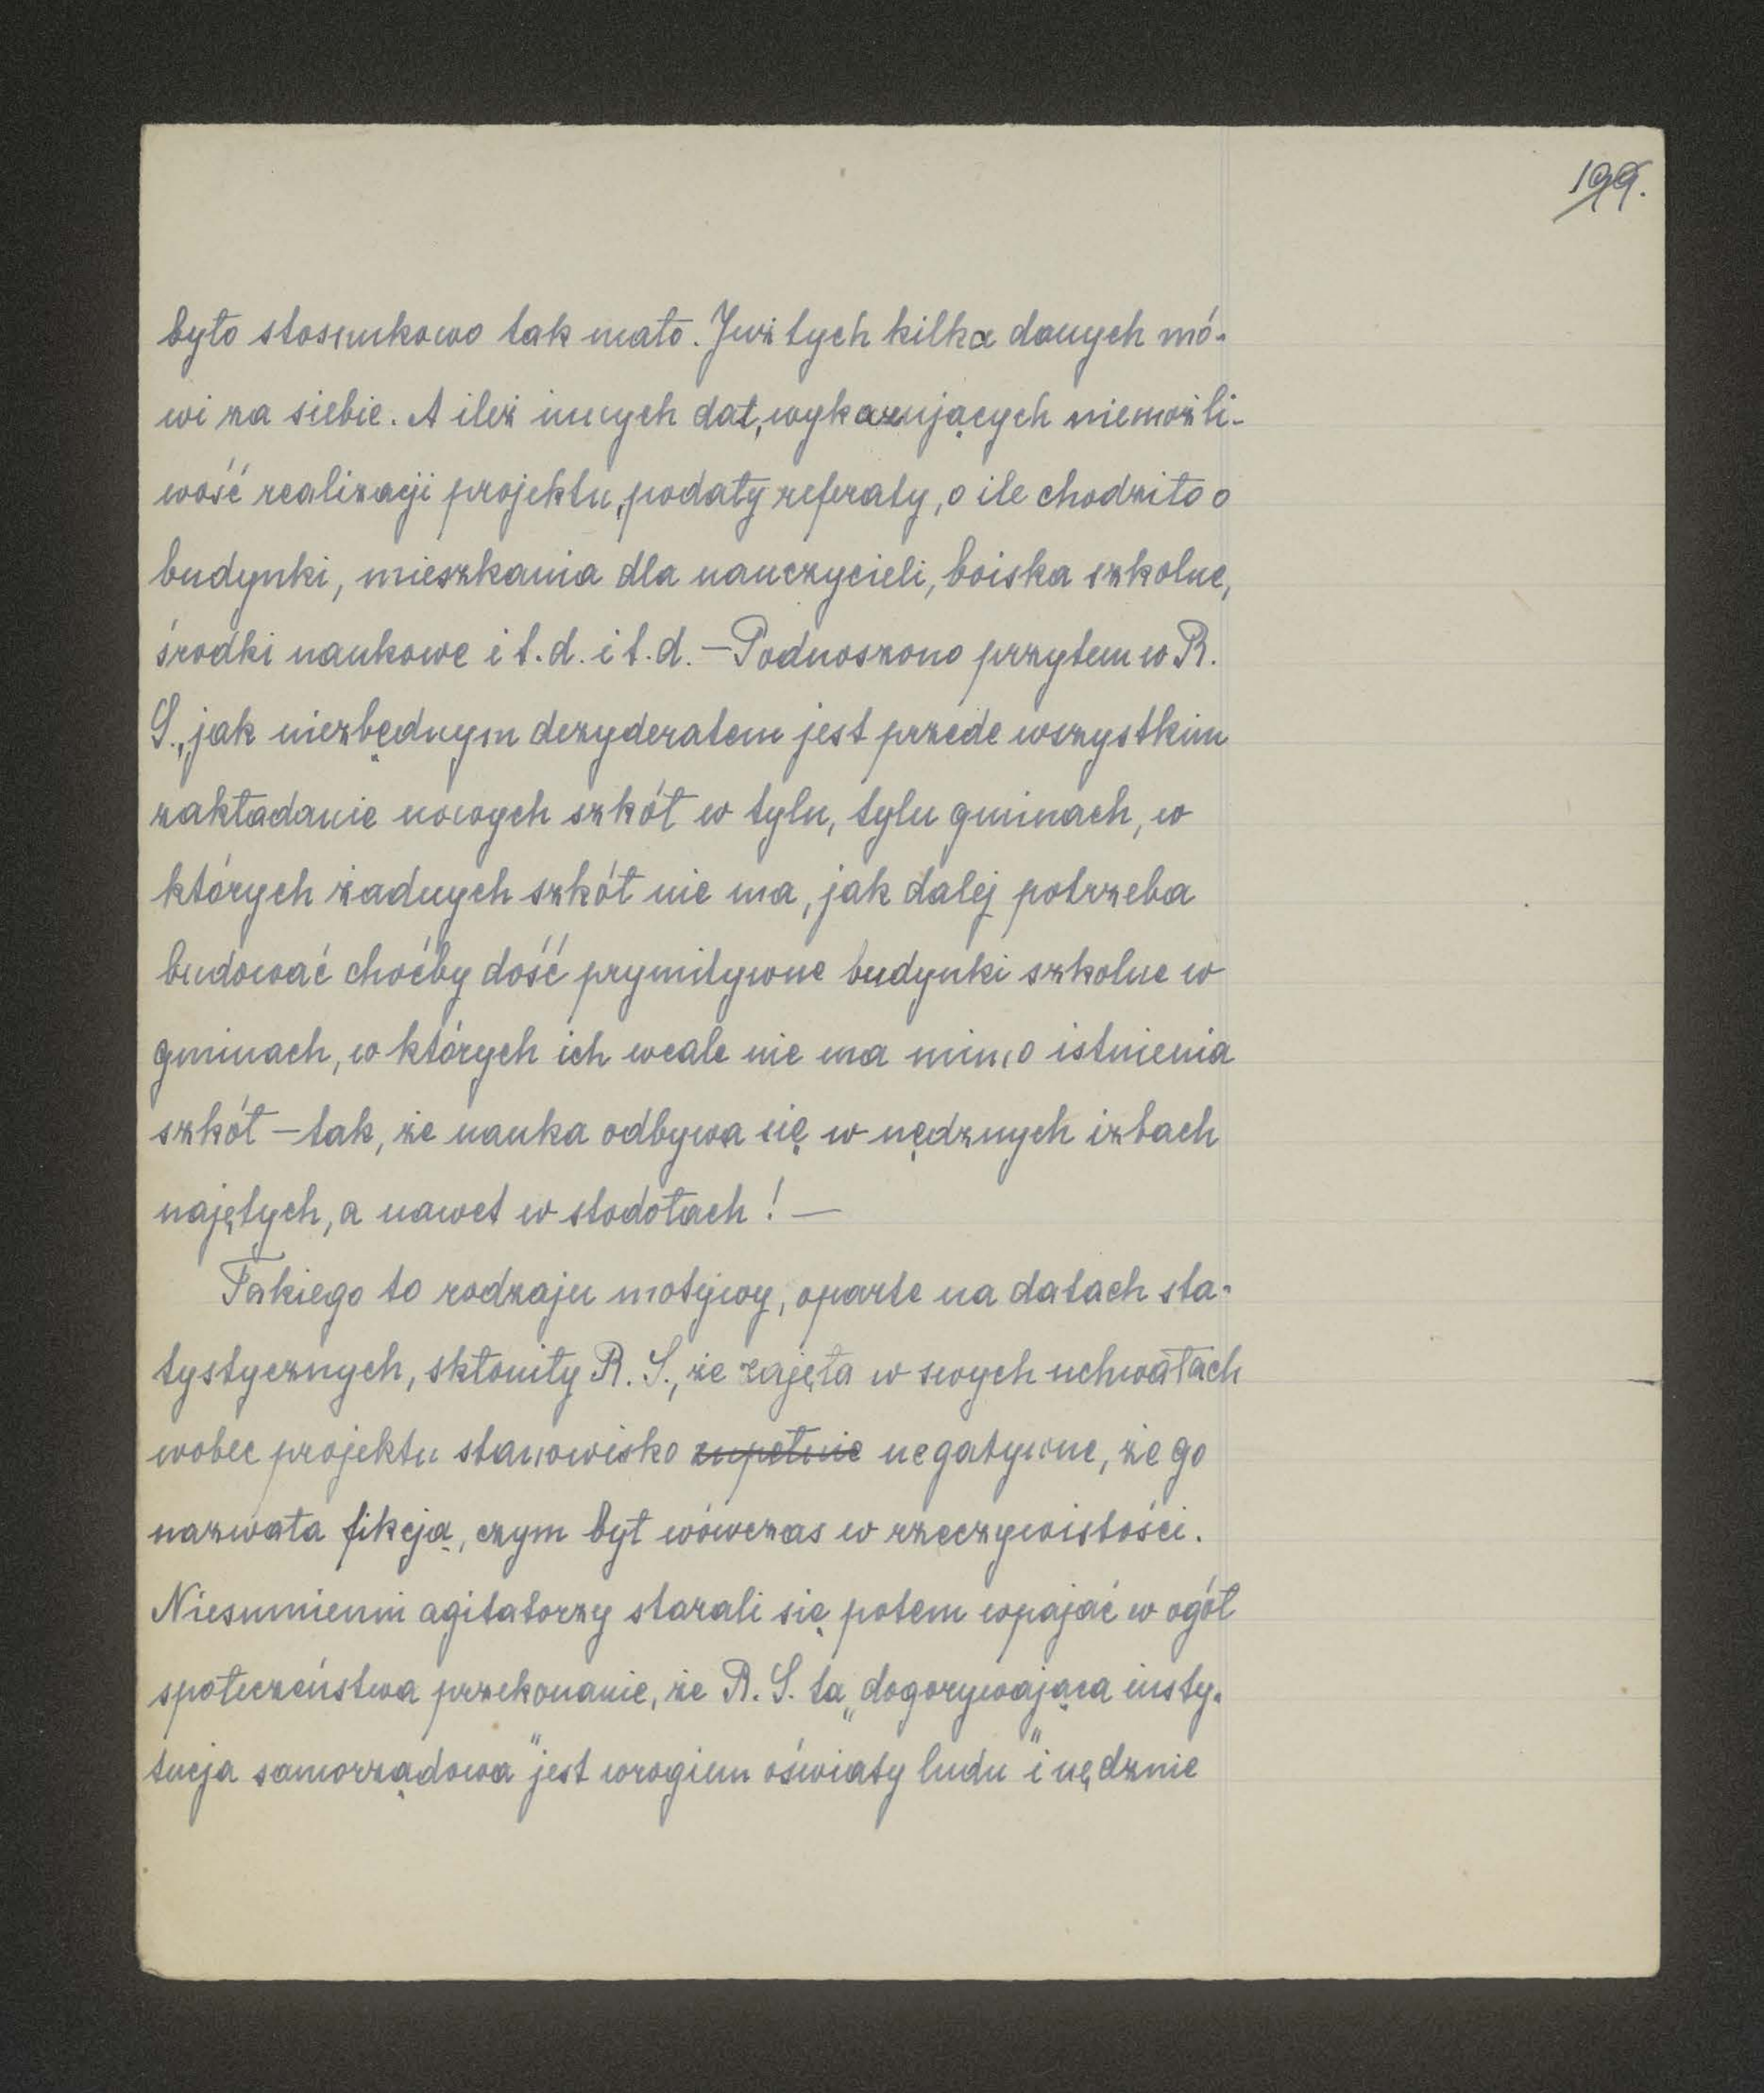 199.
było stosunkowo tak mało. Już tych kilka danych mó-
wi za siebie. A ileż innych dat, wykazujących niemożli-
wość realizacji projektu, podały referaty, o ile chodziło o
budynki, mieszkania dla nauczycieli, boiska szkolne,
środki naukowe i t.d. i t.d. — Podnoszono przytem w R.
S., jak niezbędnym dezyderatem jest przede wszystkim
zakładanie nowych szkół w tylu, tylu gminach, w
których żadnych szkół nie ma, jak dalej potrzeba
budować choćby dość prymitywne budynki szkolne w
gminach, w których ich wcale nie ma mimo istnienia
szkół — tak, że nauka odbywa się w nędznych izbach
najętych, a nawet w stodołach! —
Takiego to rodzaju motywy, oparte na datach sta-
tystycznych, skłoniły R. S., że zajęła w swych uchwałach
wobec projektu stanowisko zupełnie negatywne, że go
nazwała fikcją, czym był wówczas w rzeczywistości.
Niesumienni agitatorzy starali się potem wpajać w ogół
społeczeństwa przekonanie, że R. S. ta „dogorywająca insty-
tucja samorządowa" jest wrogiem oświaty ludu" i nędznie